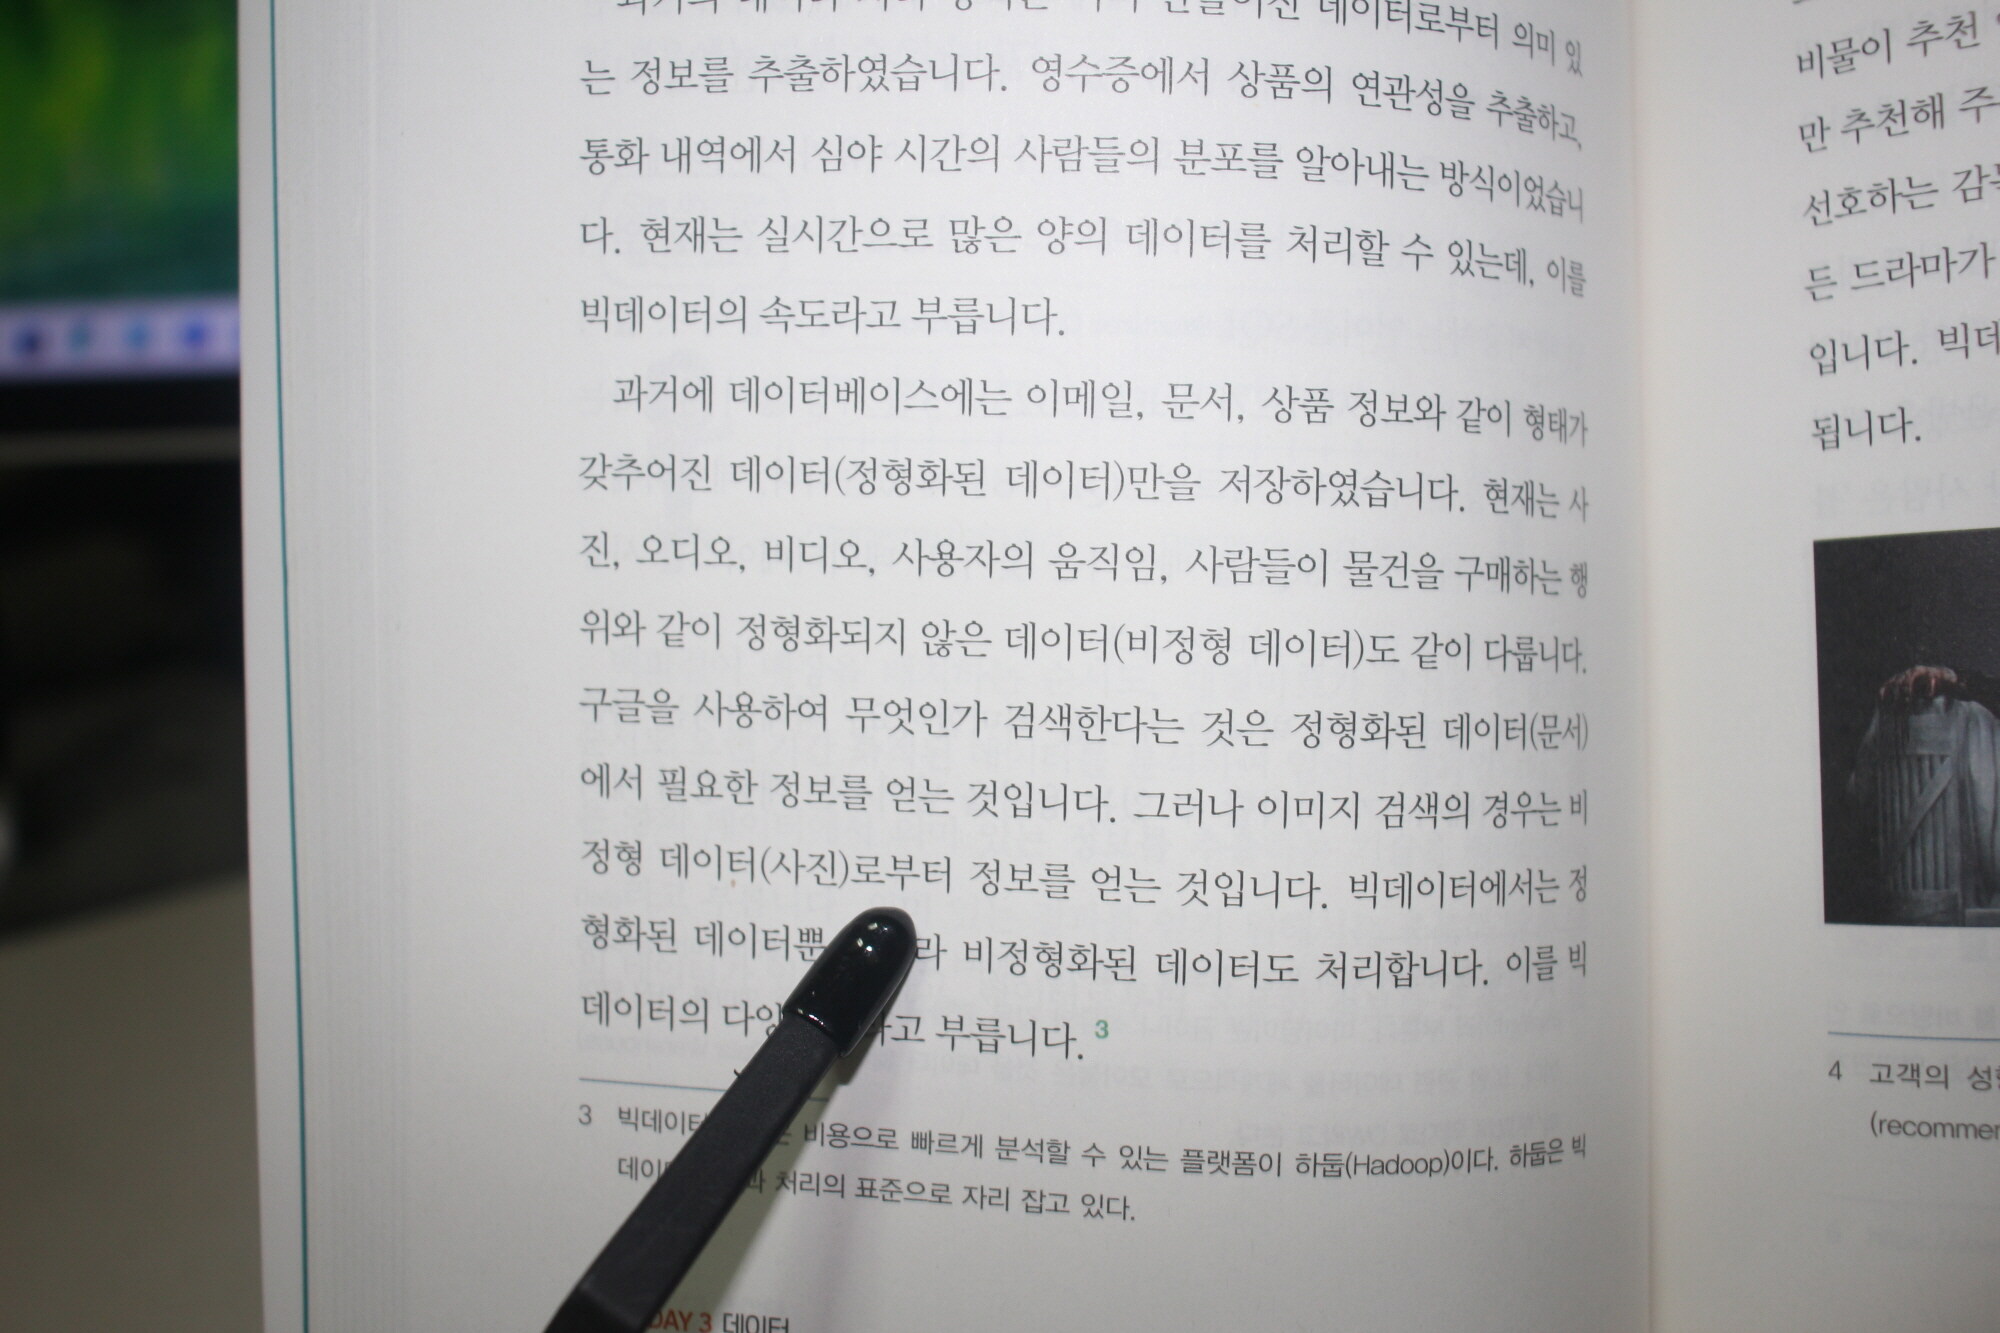 데이터로부터 의미 있
는 정보를 추출하였습니다. 영수증에서 상품의 연관성을 추출하고,
통화 내역에서 심야 시간의 사람들의 분포를 알아내는 방식이었습니
다. 현재는 실시간으로 많은 양의 데이터를 처리할 수 있는데, 이를
빅데이터의 속도라고 부릅니다.
과거에 데이터베이스에는 이메일, 문서, 상품 정보와 같이 형태가
갖추어진 데이터(정형화된 데이터)만을 저장하였습니다. 현재는 사
진, 오디오, 비디오, 사용자의 움직임, 사람들이 물건을 구매하는 행
위와 같이 정형화되지 않은 데이터(비정형 데이터)도 같이 다룹니다.
구글을 사용하여 무엇인가 검색한다는 것은 정형화된 데이터(문서)
에서 필요한 정보를 얻는 것입니다. 그러나 이미지 검색의 경우는 비
정형 데이터(사진)로부터 정보를 얻는 것입니다. 빅데이터에서는 정
형화된 데이터뿐 라 비정형화된 데이터도 처리합니다. 이를 빅
데이터의 라고 부릅니다. 3
3 빅데이터 비용으로 빠르게 분석할 수 있는 플랫폼이 하둡(Hadoop)이다. 하둡은 빅
처리의 표준으로 자리 잡고 있다.
DAY 3 데이터
비물이 추천
만 추천해 주
선호하는
든 드라마가
입니다.
됩니다.
4 고객의